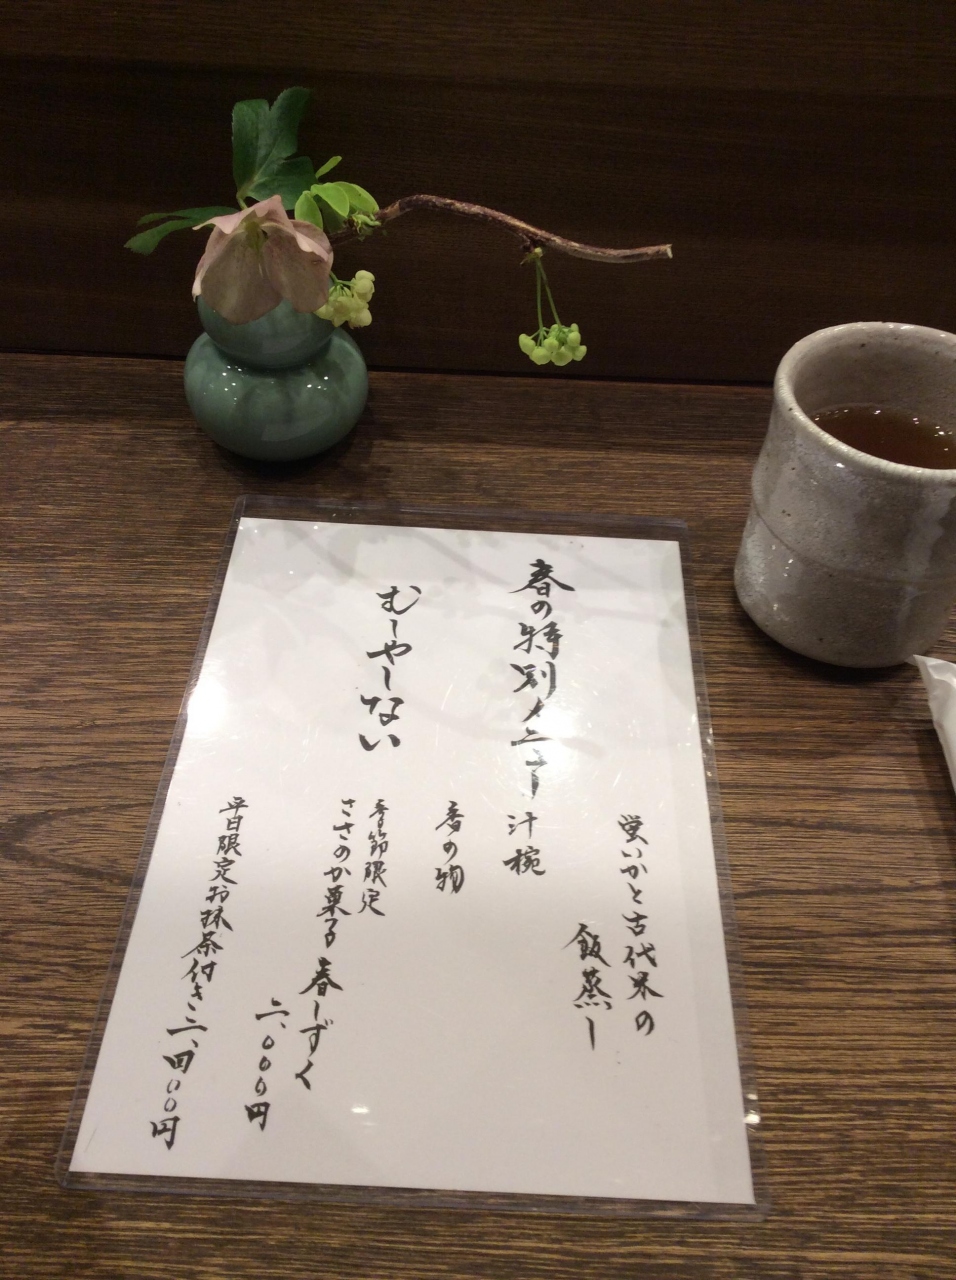 春の特別メニュー
むしやしない
蛍いかと古代米の
飯蒸し
汁椀
香の物
季節限定
ささのか菓子 春しずく
二、〇〇〇円
平日限定お抹茶付き二、四〇〇円